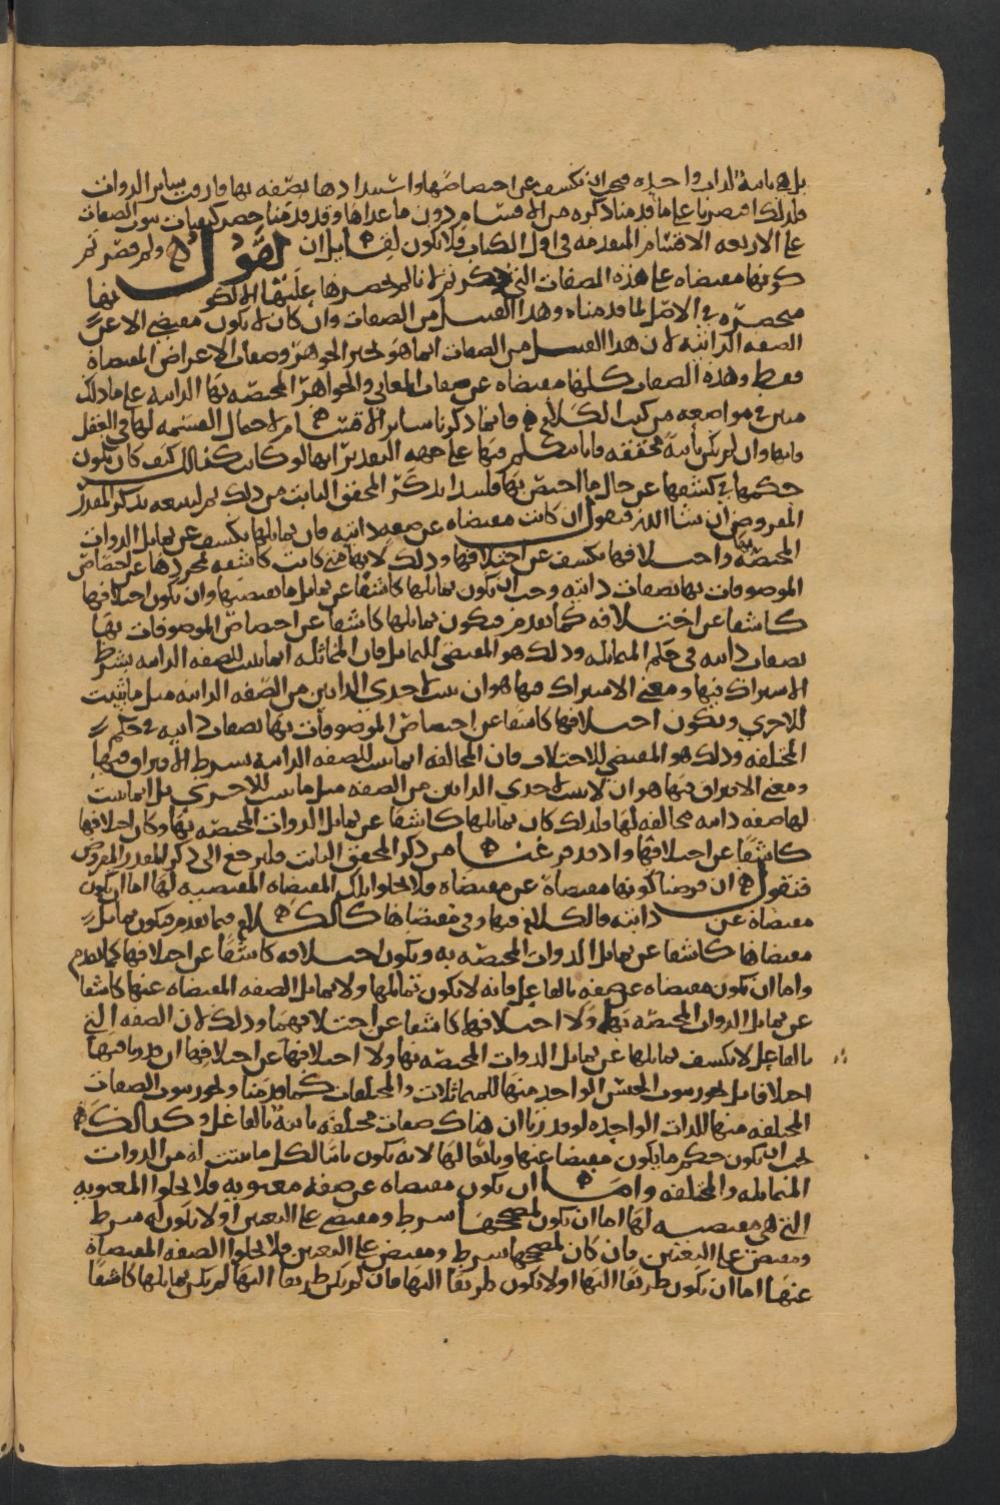 بل هي ثابتة لذات واحدة فيجب ان تكشف عن اختصاصها واستبدادها بصفة بها فارقت سائر الذوات
فلذلك اقتصرنا على ما قدمنا ذكره من الاقسام دون ما عداها وقد قدمنا حصر كيفيات ثبوت الصفات
على الاربعة الاقسام المقدمة في اول الكتاب فلا يكون لقائل ان يقول ولم قصرتم
كونها مقتضاه على هذه الصفات التي ذكرتم لانا لم نحصرها عليها الا لكونها
منحصرة في الاصل لما قدمناه وهذا القسم من الصفات وان كان لا يكون مقتضى الا عن
الصفة الذاتية لان هذا القسم من الصفات انما هو تحيز الجوهر وصفات الاعراض المقتضاة
فقط وهذه الصفات كلها مقتضاه عن صفات المعاني والجواهر المختصة بها الذاتية على ما ذلك
مبين في مواضعه من كتب الكلام فانما ذكرنا سائر الاقسام لاحتمال القسمة لها في العقل
فانها وان لم تكن ثابتة محققه فانا نتكلم فيها على جهة التقدير انها لو كانت كذلك كيف كان يكون
حكمها في كشفها عن حال ما اختص بها فلنبدا بذكر المحقق الثابت من ذلك ثم لنتبعه بذكر المقدر
المفروض ان شا الله فنقول ان كانت مقتضاه عن صفة ذاتية فان تماثلها يكشف عن تماثل الذوات
المختصة بها واختلافها يكشف عن اختلافها وذلك لانها متى كانت كاشفه بمجردها عن اختصاص
الموصوفات بها بصفات ذاتية وجب ان يكون تماثلها كاشفا عن تماثل ما يقتضيها وان يكون اختلافها
كاشفا عن اختلافه كما تقدم فيكون تماثلها كاشفا عن اختصاص الموصوفات بها
بصفات ذاتيه في حكم المتماثله وذلك هو المقتضي للتماثل فان المماثله انما تثبت للصفه الذاتيه بشرط
الاشتراك فيها ومعنى الاشتراك فيها هو ان يثبت لاحدى الذاتين من الصفه الذاتيه مثل ما يثبت
للاخرى ويكون اختلافها كاشفا عن اختصاص الموصوفات بها بصفات ذاتيه في حكم
المختلفه وذلك هو المقتضي للاختلاف فان المخالفه انما تثبت للصفه الذاتيه بشرط الافتراق فيها
ومعنى الافتراق فيها هو ان لا يثبت لاحدى الذاتين من الصفه مثل ما يثبت للاخرى بل انما يثبت
لها صفه ذاتيه مخالفه لها فلذلك كان تماثلها كاشفا عن تماثل الذوات المختصه بها وكان اختلافها
كاشفا عن اختلافها واذ قد فرغنا من ذكر المحقق الثابت فلنرجع الى ذكر المقدر المفروض
فنقول ان فرضنا كونها مقتضاة عن مقتضاه فلا تخلوا تلك المقتضاه المقتضيه لها اما ان تكون
مقتضاة عن ذاتيه فالكلام فيها وفي مقتضاها كالكلام فيما تقدم فيكون تماثل
مقتضاها كاشفا عن تماثل الذوات المختصه به ويكون اختلافه كاشفا عن اختلافها كما تقدم
واما ان تكون مقتضاه عن صفه بالفاعل فانه لا يكون تماثلها ولا تماثل الصفه المقتضاه عنها كاشفا
عن تماثل الذوات المختصه بها ولا اختلافها كاشفا عن اختلافهما وذلك لان الصفه التي
بالفاعل لا يكشف تماثلها عن تماثل الذوات المختصه بها ولا اختلافها عن اختلافها ان قدرنا فيها
اختلافا بل يجوز ثبوت الجنس الواحد منها للمتماثلات والمختلفات كما قدمنا ويجوز ثبوت الصفات
المختلفه منها للذات الواحده لو قدرنا ان هناك صفات مختلفه ثابتة بالفاعل وكذلك
يجب ان يكون حكم ما يكون مقتضا عنها وتابعا لها لانه يكون تابعا لكل ما يثبت له من الذوات
المتماثله والمختلفه واما ان تكون مقتضاه عن صفة معنويه فلا تخلوا المعنويه
التي هي مقتضيه لها اما ان يكون لمصححها شرط ومقتضي على التعيين او لا يكون له شرط
ومقتضي على التعيين فان كان لمصححها شرط ومقتضي على التعيين فلا تخلوا الصفه المقتضاة
عنها اما ان تكون طريقا اليها او لا تكون طريقا اليها فان لم تكن طريقا اليها لم يكن تماثلها كاشفا